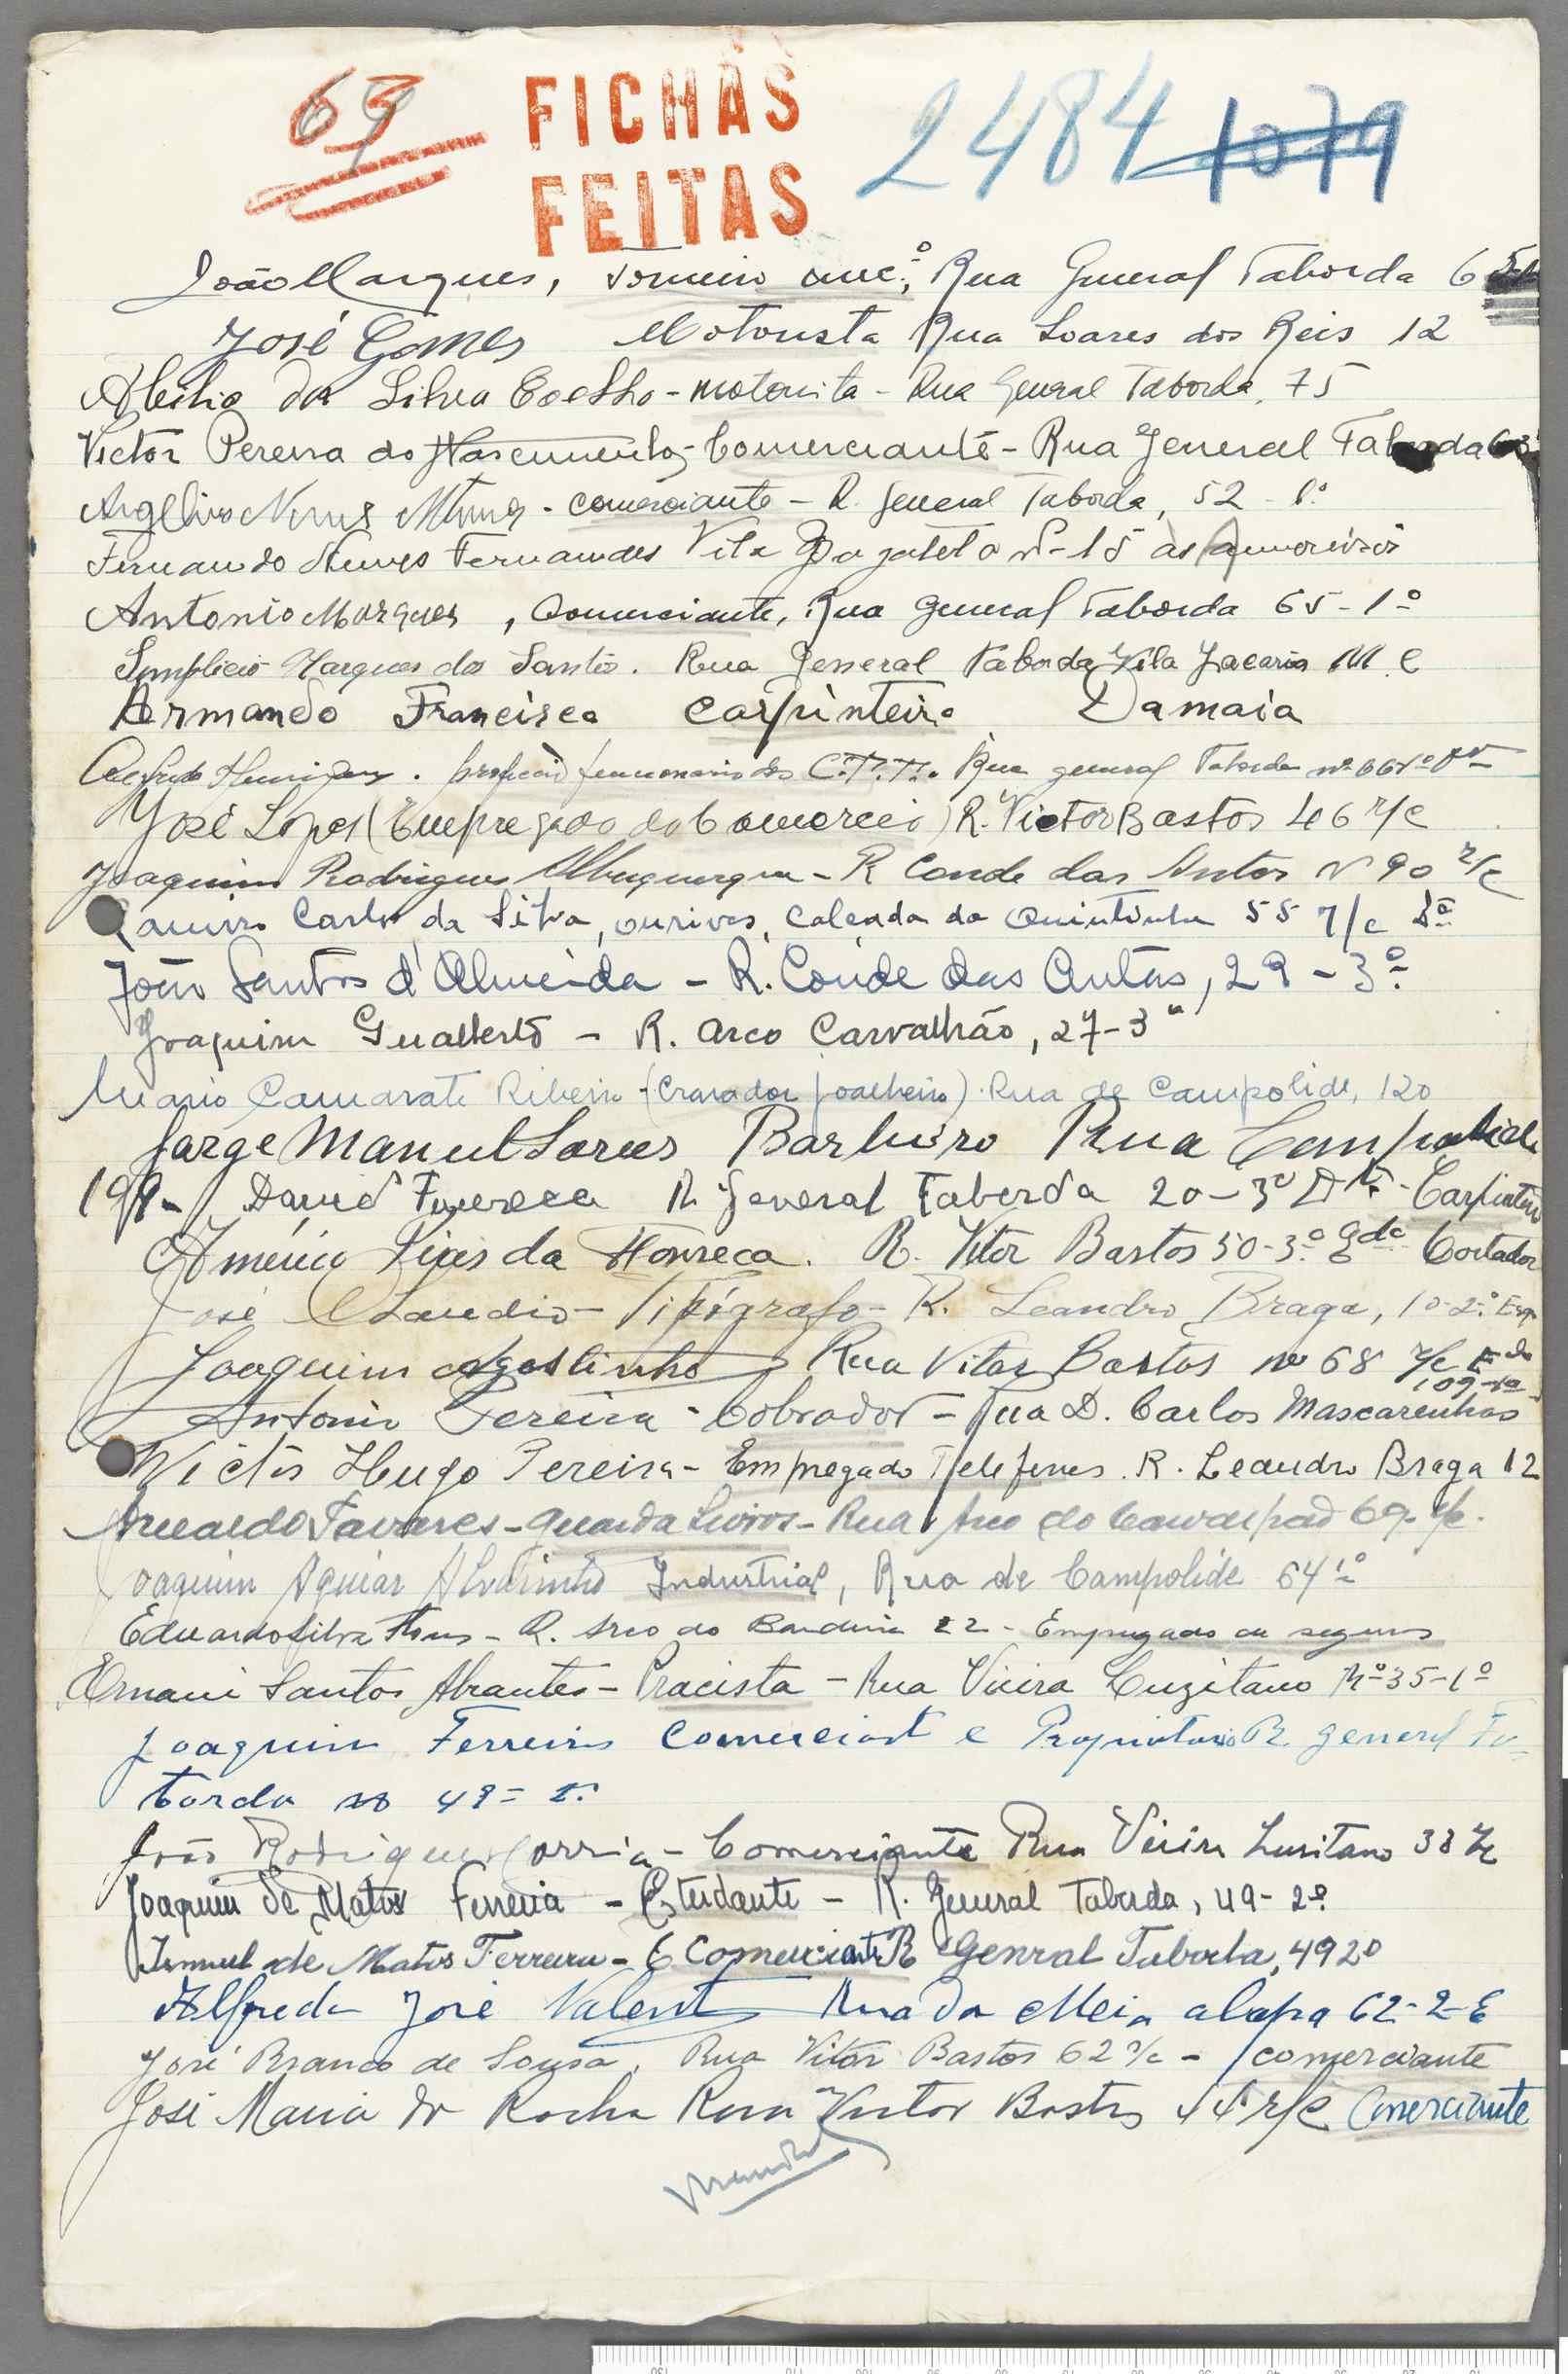 63 FICHAS 2484 1079
FEITAS
João Marques, torneiro mec.º, Rua General Taborda 65
José Gomes Motorista Rua Soares dos Reis 12
Abilio da Silva Coelho - motorista - Rua General Taborda, 75
Victor Pereira do Nascimento, - Comerciante - Rua General Taborda 63
Nunes - comerciante - R. General Taborda, 52 - 1º
Fernando Nunes Fernandes Vila nº - 15 às Amoreiras
Antonio Marques, Comerciante, Rua General Taborda 65 - 1º
Simplicio Marques dos Santos. Rua General Taborda Vila Zacarias M C
Armando Francisco Carpinteiro Damaia
Alfredo Henriques. profição funcionario dos C.T.T. Rua general Taborda nº 66
José Lopes (Empregado do Comercio) R. Victor Bastos 46 r/c
Joaquim Rodrigues Albuquerque - R Conde das Antas Nº 90 r/c
Ramiro Carlos da Silva, ourives, Calçada da Quintinha 55 r/c
João Santos d'Almeida - R. Conde das Antas, 29 - 3º
Joaquim Gualberto - R. Arco Carvalhão, 27-3º
Mario Camarate Ribeiro - (Cravador joalheiro) - Rua de Campolide, 120
Jorge Manuel Soares Barbeiro Rua Campolide
199 - David Fonseca R General Taborda 20 - 3º Dtº - Carpinteiro
Américo Luis da Fonseca. R. Vitor Bastos 50-3º Cortador
José Claudio - Tipógrafo - R. Leandro Braga, 10-2º Esq
Joaquim Agostinho Rua Vitor Bastos nº 68 r/c
109
Antonio Pereira - Cobrador - Rua D. Carlos Mascarenhas
Victor Hugo Pereira - Empregado Telefones. R. Leandro Braga 12
Arnaldo Tavares - Guarda Livros - Rua Arco do Carvalhão 69 r/c.
Joaquim Aguiar Alvarinho Industrial, Rua de Campolide 64 1º
Eduardo Silva - R. Arco do Bandeira 22 - Empregado de seguros
Ernani Santos Abrantes - Pracista - Rua Vieira Luzitano Nº 35-1º
Joaquim Ferreira Comerciant e Propriotario R. General Ta-
borda nº 49 = 2º
João Rodrigues Correia - Comerciante Rua Vieira Lusitano 38 r/c
Joaquim de Matos Ferreira - Estudante - R. General Taborda, 49 - 2º
de Matos Ferreira - Comerciante R General Taborda, 49 2º
Alfredo José Valente Rua da Meia 62-2-E
José Branco de Sousa, Rua Vitor Bastos 62 r/c - comerciante
José Maria da Rocha Rua Victor Bastos 44 r/c Comerciante